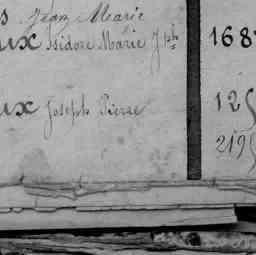 s Jean Marie
ux Isidore Marie Jph 168
ux Joseph Pierre 125
2195